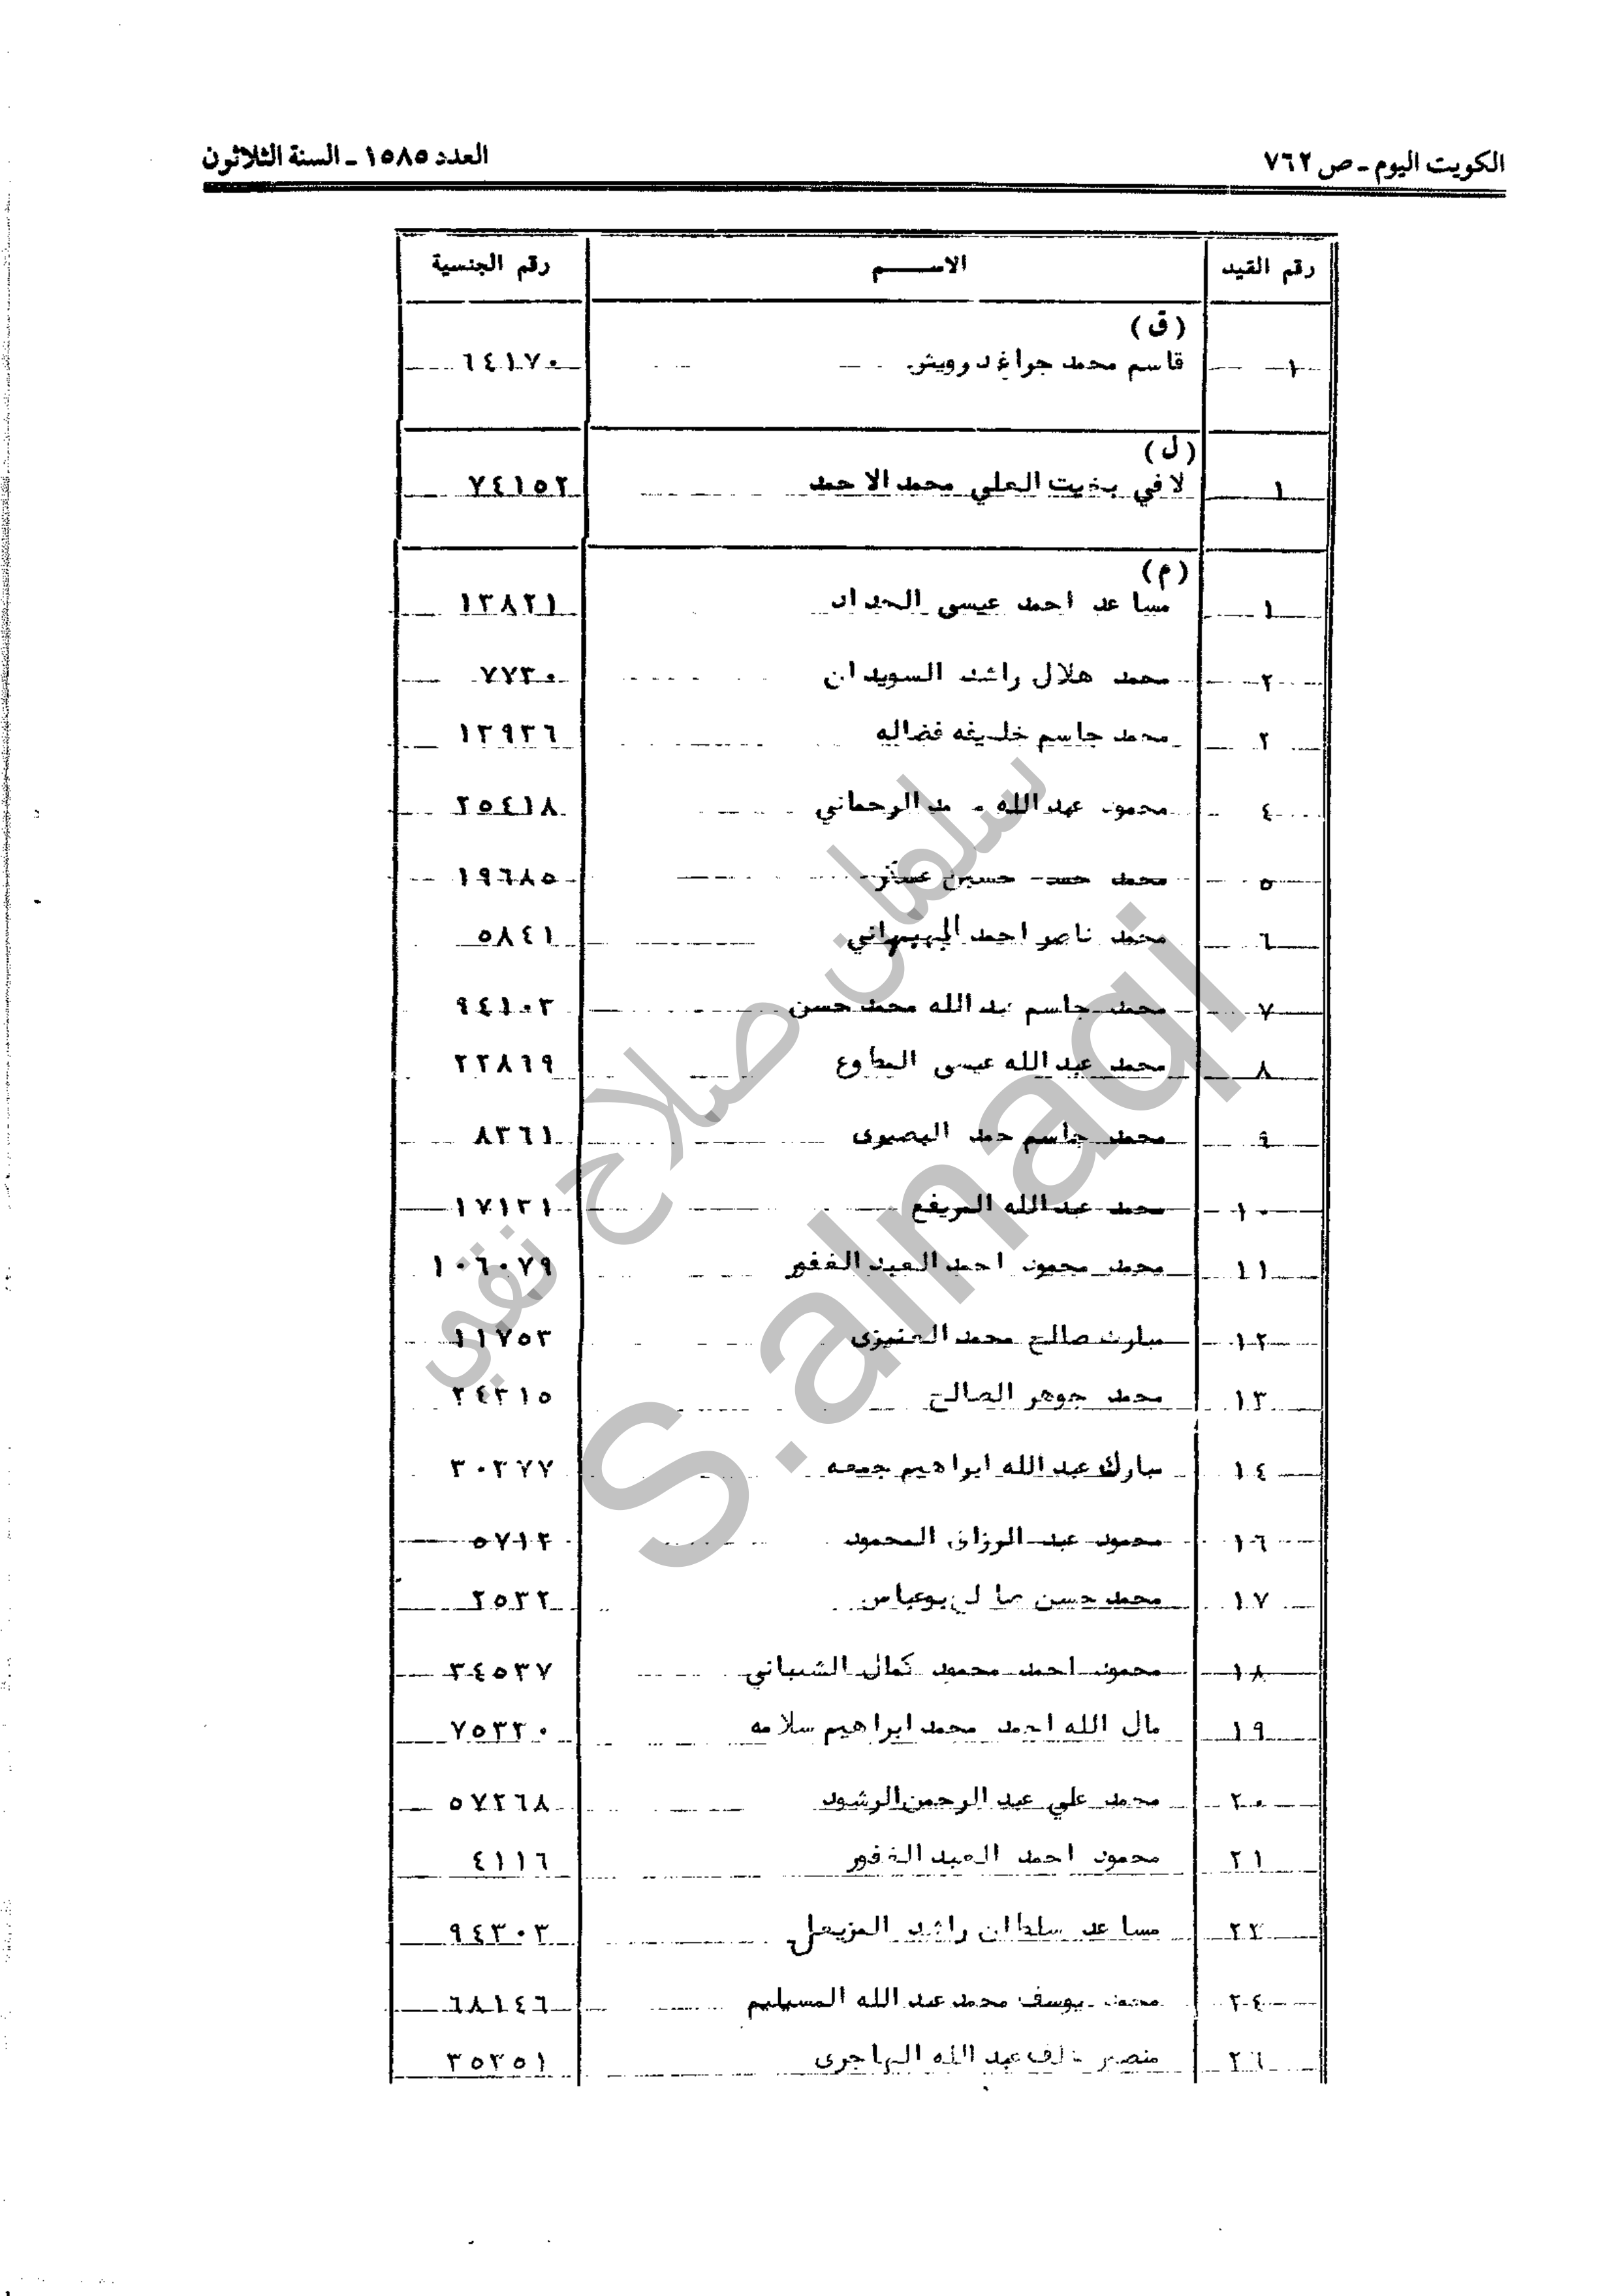 الكويت اليوم - ص ٧٦٢
العدد ١٥٨٥ - السنة الثلاثون
رقم القيد الاسم رقم الجنسية
(ق)
١ قاسم محمد درويش ٦٤١٧٠
(ل)
١ لافي بخيت العلي محمد الاحمد ٧٤١٥٢
(م)
١ مساعد احمد عيسى الحداد ١٣٨٢١
٢ محمد هلال راشد السويدان ٧٧٣٠
محمد جاسم خليفه فضاله ١٣٩٣٦
٤ محمود عبدالله الرحماني ٢٥٤١٨
٥ محمد حسين ١٩٦٨٥
٦ محمد ناصر احمد البهبهاني ٥٨٤١
٧ محمد جاسم عبدالله محمد حسن ٩٤١٠٣
٨ محمد عبدالله عيسى المطاوع ٢٢٨٦٩
٩ محمد جاسم حمد البصيرى ٨٣٦١
١٠ محمد عبدالله المريفع ١٧١٣١
١١ محمد محمود احمد العبد الغفور ١٠٦٠٧٩
١٢ مبارك صالح محمد العنيزى ١١٧٥٣
١٣ محمد جوهر الصالح ٢٤٣١٥
١٤ مبارك عبدالله ابراهيم جمعه ٣٠٢٧٧
١٦ محمود عبد الرزاق المحمود ٥٧١٢
١٧ محمد حسن بوعباس ٢٥٣٢
١٨ محمود احمد محمود كمال الشيباني ٣٤٥٣٧
١٩ مال الله احمد محمد ابراهيم سلامه ٧٥٣٣٠
٢٠ محمد علي عبد الرحمن الرشود ٥٧٢٦٨
٢١ محمود احمد العبد الغفور ٤١١٦
مساعد سلطان راشد المزيعل ٩٤٣٠٣
٢٤ محمد يوسف محمد عبدالله المسيليم ٦٨١٤٦
٢٦ عبدالله الهاجرى ٣٥٢٥١
سلمان صلاح نقي
S.alnaqi